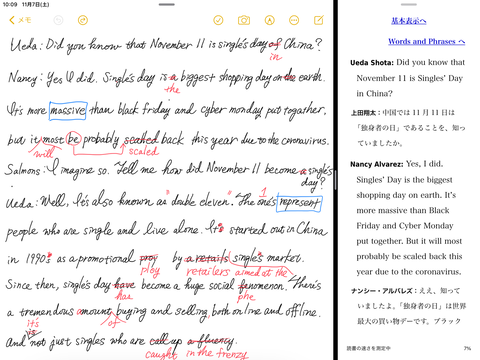 10:09 11月7日(土)
メモ
Ueda: Did you know that November 11 is single's day of China?
in
Nancy: Yes, I did. Single's day is a biggest shopping day on the earth.
the
It's more massive than black friday and cyber monday put together.
but it most be probably scaled back this year due to the coronavirus.
will
scaled
Salmons: I imagine so. Tell me how did November 11 become a single's
day?
Ueda: Well, It's also known as "double eleven". The one's represent
1
people who are single and live alone. It's started out in China
in 1990s as a promotional ploy by a retails single's market.
ploy retailers aimed at the
Since then, single's day have become a huge social fenomenon. There's
has
phe
a tremendous amount buying and selling both online and offline.
of
it's
And not just singles who are call up a fluency.
caught in the frenzy
基本表示へ
Words and Phrases へ
Ueda Shota: Did you know that
November 11 is Singles' Day
in China?
上田翔太：中国では 11 月 11 日は
「独身者の日」であることを、知っ
ていましたか。
Nancy Alvarez: Yes, I did.
Singles' Day is the biggest
shopping day on earth. It's
more massive than Black
Friday and Cyber Monday
put together. But it will most
probably be scaled back this
year due to the coronavirus.
ナンシー・アルバレズ：ええ、知って
いましたよ。「独身者の日」は世界
最大の買い物デーです。ブラック
読書の速さを測定中
7%